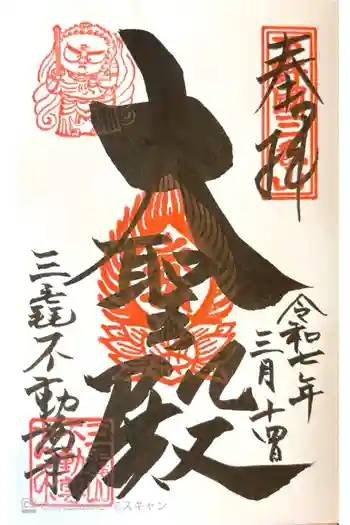 奉拝
大聖殿
令和七年
三月十四日
三毳不動尊
スキャン